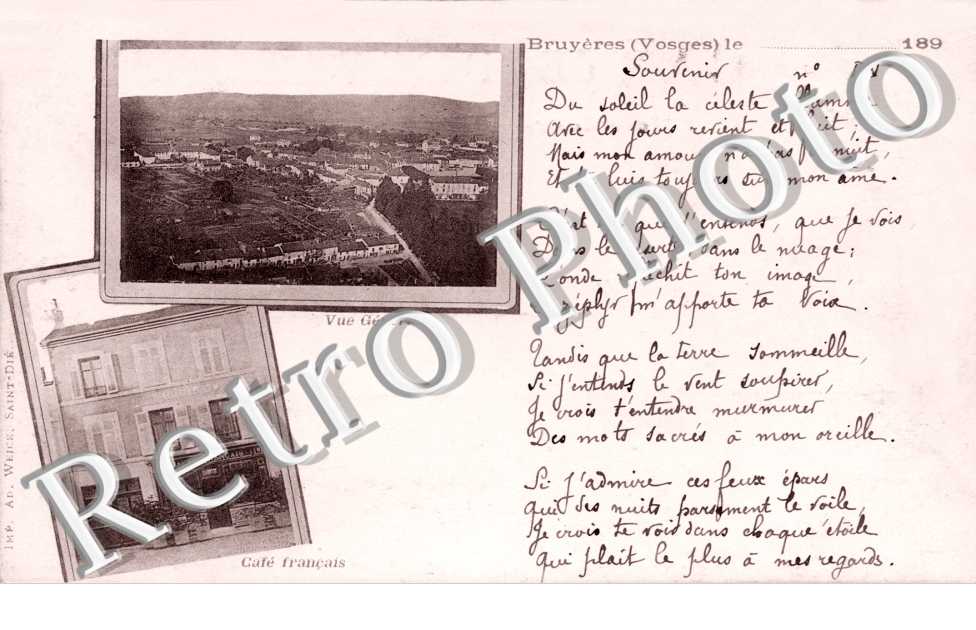 Bruyères (Vosges) le 189
Souvenir n°
Du soleil la céleste
Avec les jours revient et fuit,
Mais mon amour n'a pas nuit,
Et luis toujours sur mon âme.
que j'entends, que je vois,
Dans le désert, dans le nuage;
L'onde réfléchit ton image,
zéphyr m'apporte ta voix.
Tandis que la terre sommeille,
Si j'entends le vent soupirer,
Je crois t'entendre murmurer
Des mots sacrés à mon oreille.
Si j'admire ces feux épars
qui des nuits parsèment le voile,
Je crois te voir dans chaque étoile
Qui plait le plus à mes regards.
Vue
Café français
IMP. AD. WEICK, SAINT-DIÉ
Retro Photo